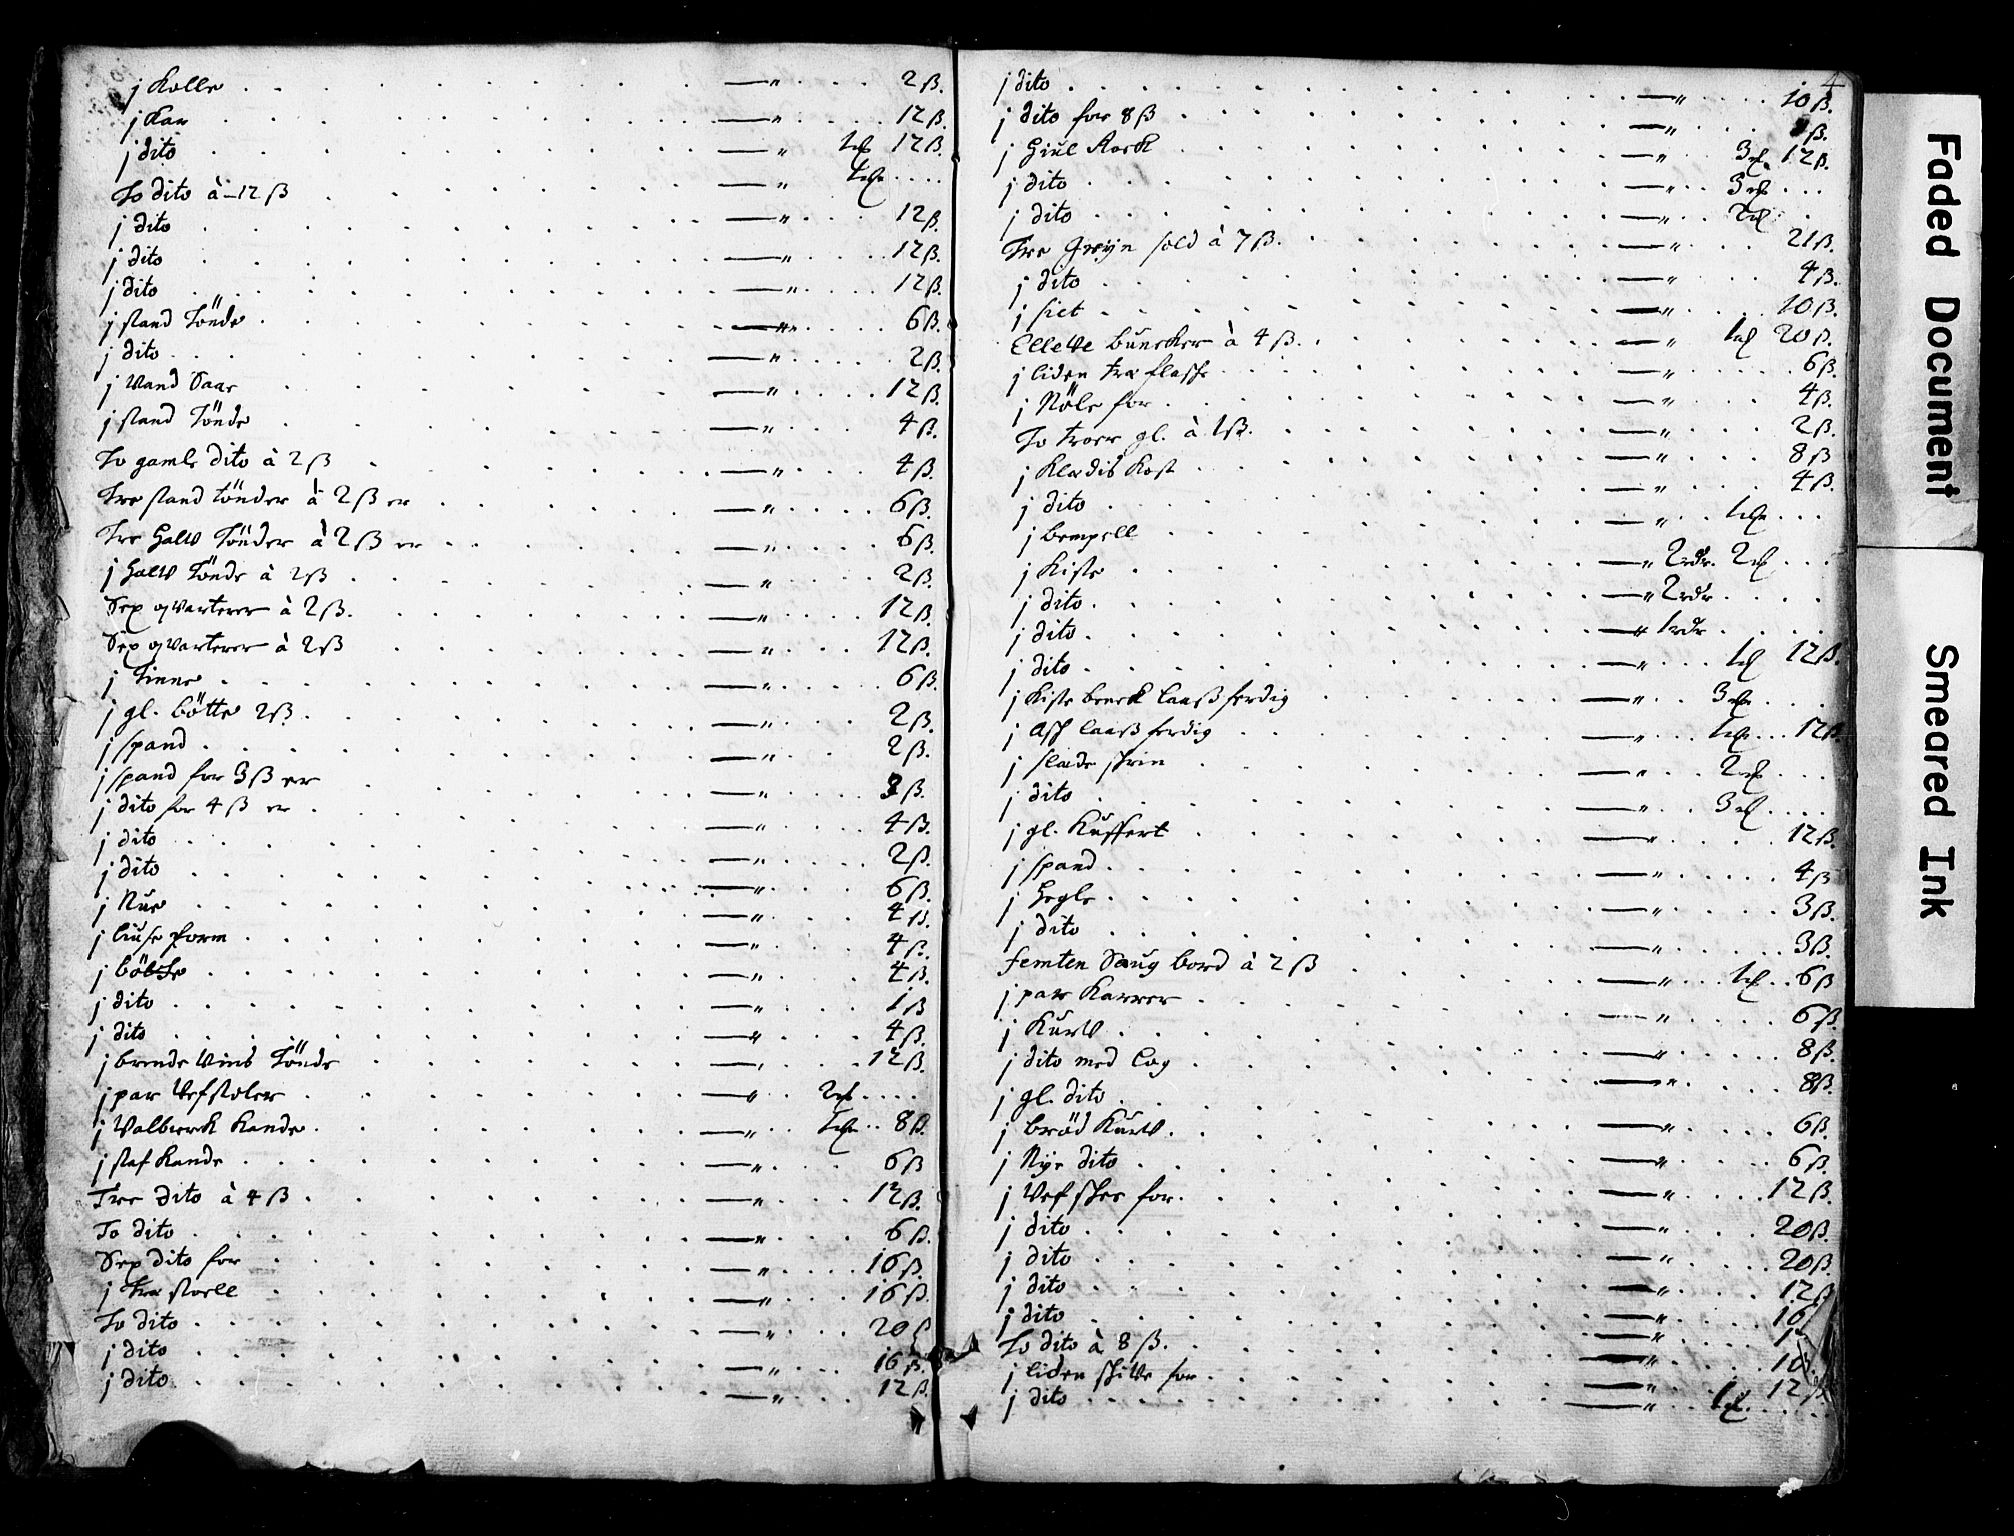 j Kolle — " 2 ß.
j Kar — " 12 ß.
j dito — " 1 12 ß.
To dito à 12 ß — " 1
j dito — " 12 ß.
j dito — " 12 ß.
j dito — " 12 ß.
j stand Tönde — " 6 ß.
j dito — " 2 ß.
j Vand Saae — " 12 ß.
j stand Tönde — " 4 ß.
To gamle dito à 2 ß — " 4 ß.
Tre stand tönder à 2 ß er — " 6 ß.
Tre halv Tönder à 2 ß er — " 6 ß.
j halv Tönde à 2 ß — " 2 ß.
Sex qvarterer à 2 ß. — " 12 ß.
Sex qvarterer à 2 ß — " 12 ß.
j Tinne — " 6 ß.
j gl. bötte 2 ß. — " 2 ß.
j spand — " 2 ß.
j spand for 3 ß er — " 3 ß.
j dito for 4 ß er — " 4 ß.
j dito — " 2 ß.
j dito — " 6 ß.
j — " 4 ß.
j liuse form — " 4 ß.
j — " 4 ß.
j dito — " 1 ß
j dito — " 4 ß.
j brende Vins Tönde — 12 ß.
j par Vefstoler — " 2
j Valbierk Kande — " 1 8 ß.
j staf Kande — " 6 ß
Tre dito à 4 ß — " 12 ß.
To dito — " 6 ß.
Sex dito for — " 16 ß.
j træ stoell — " 16 ß.
To dito — " 20 ß
j dito — " 16 ß.
j dito — " 12 ß.
4
j dito — " 10 ß.
j dito for 8 ß — " ß.
j Hiul Rock — " 3 12 ß.
j dito — " 3
j dito — " 2
Tre à 7 ß. — " 21 ß.
j dito — " 4 ß.
j — " 10 ß.
Elleve büncker à 4 ß. — " 1 20 ß.
j liden træ flasche — " 6 ß.
j for — " 4 ß.
To gl. à 1 ß. — " 2 ß.
j Klædis Kost — " 8 ß
j dito — " 4 ß.
j — " 1
j Kiste — " 2 rdr. 2
j dito — " 2 rdr
j dito — " 1 rdr
j dito — " 1 12 ß.
j Kiste benck laaß ferdig — " 3
j Ash laaß ferdig — " 1 12 ß
j slæde skrin — " 2
j dito — " 3
j gl. Küffert — " 12 ß.
j spand — " 4 ß
j Hegle — " 3 ß.
j dito — " 3 ß.
femten Saug bord à 2 ß — " 1 6 ß
j par Karrer — " 6 ß
j Kürv — " 8 ß.
j dito med log — " 8 ß
j gl. dito — " 6 ß.
j bröd Kürv — " 6 ß.
j Nye dito — " 12 ß.
j Vef skee for — " 20 ß.
j dito — " 20 ß.
j dito — " 12 ß
j dito — " 16
j dito — "
To dito à 8 ß. — " 16
j liden skive for — " 12 ß
j dito — " 1
Faded Document
Smeared Ink